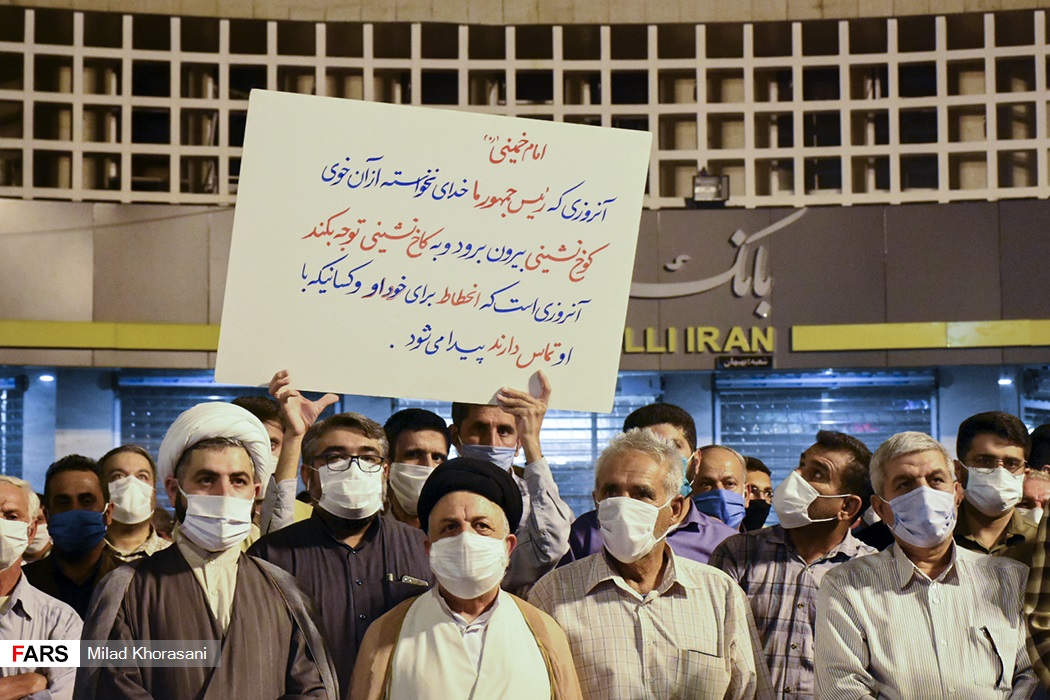 امام خمینی (ره)
آنروزی که رئیس جمهور ما خدای نخواسته از آن خوی
کوخ نشینی بیرون برود و به کاخ نشینی توجه بکند
آنروزی است که انحطاط برای خود او و کسانیکه با
او تماس دارند پیدا می‌شود .
بانک
LLI IRAN
FARS
Milad Khorasani